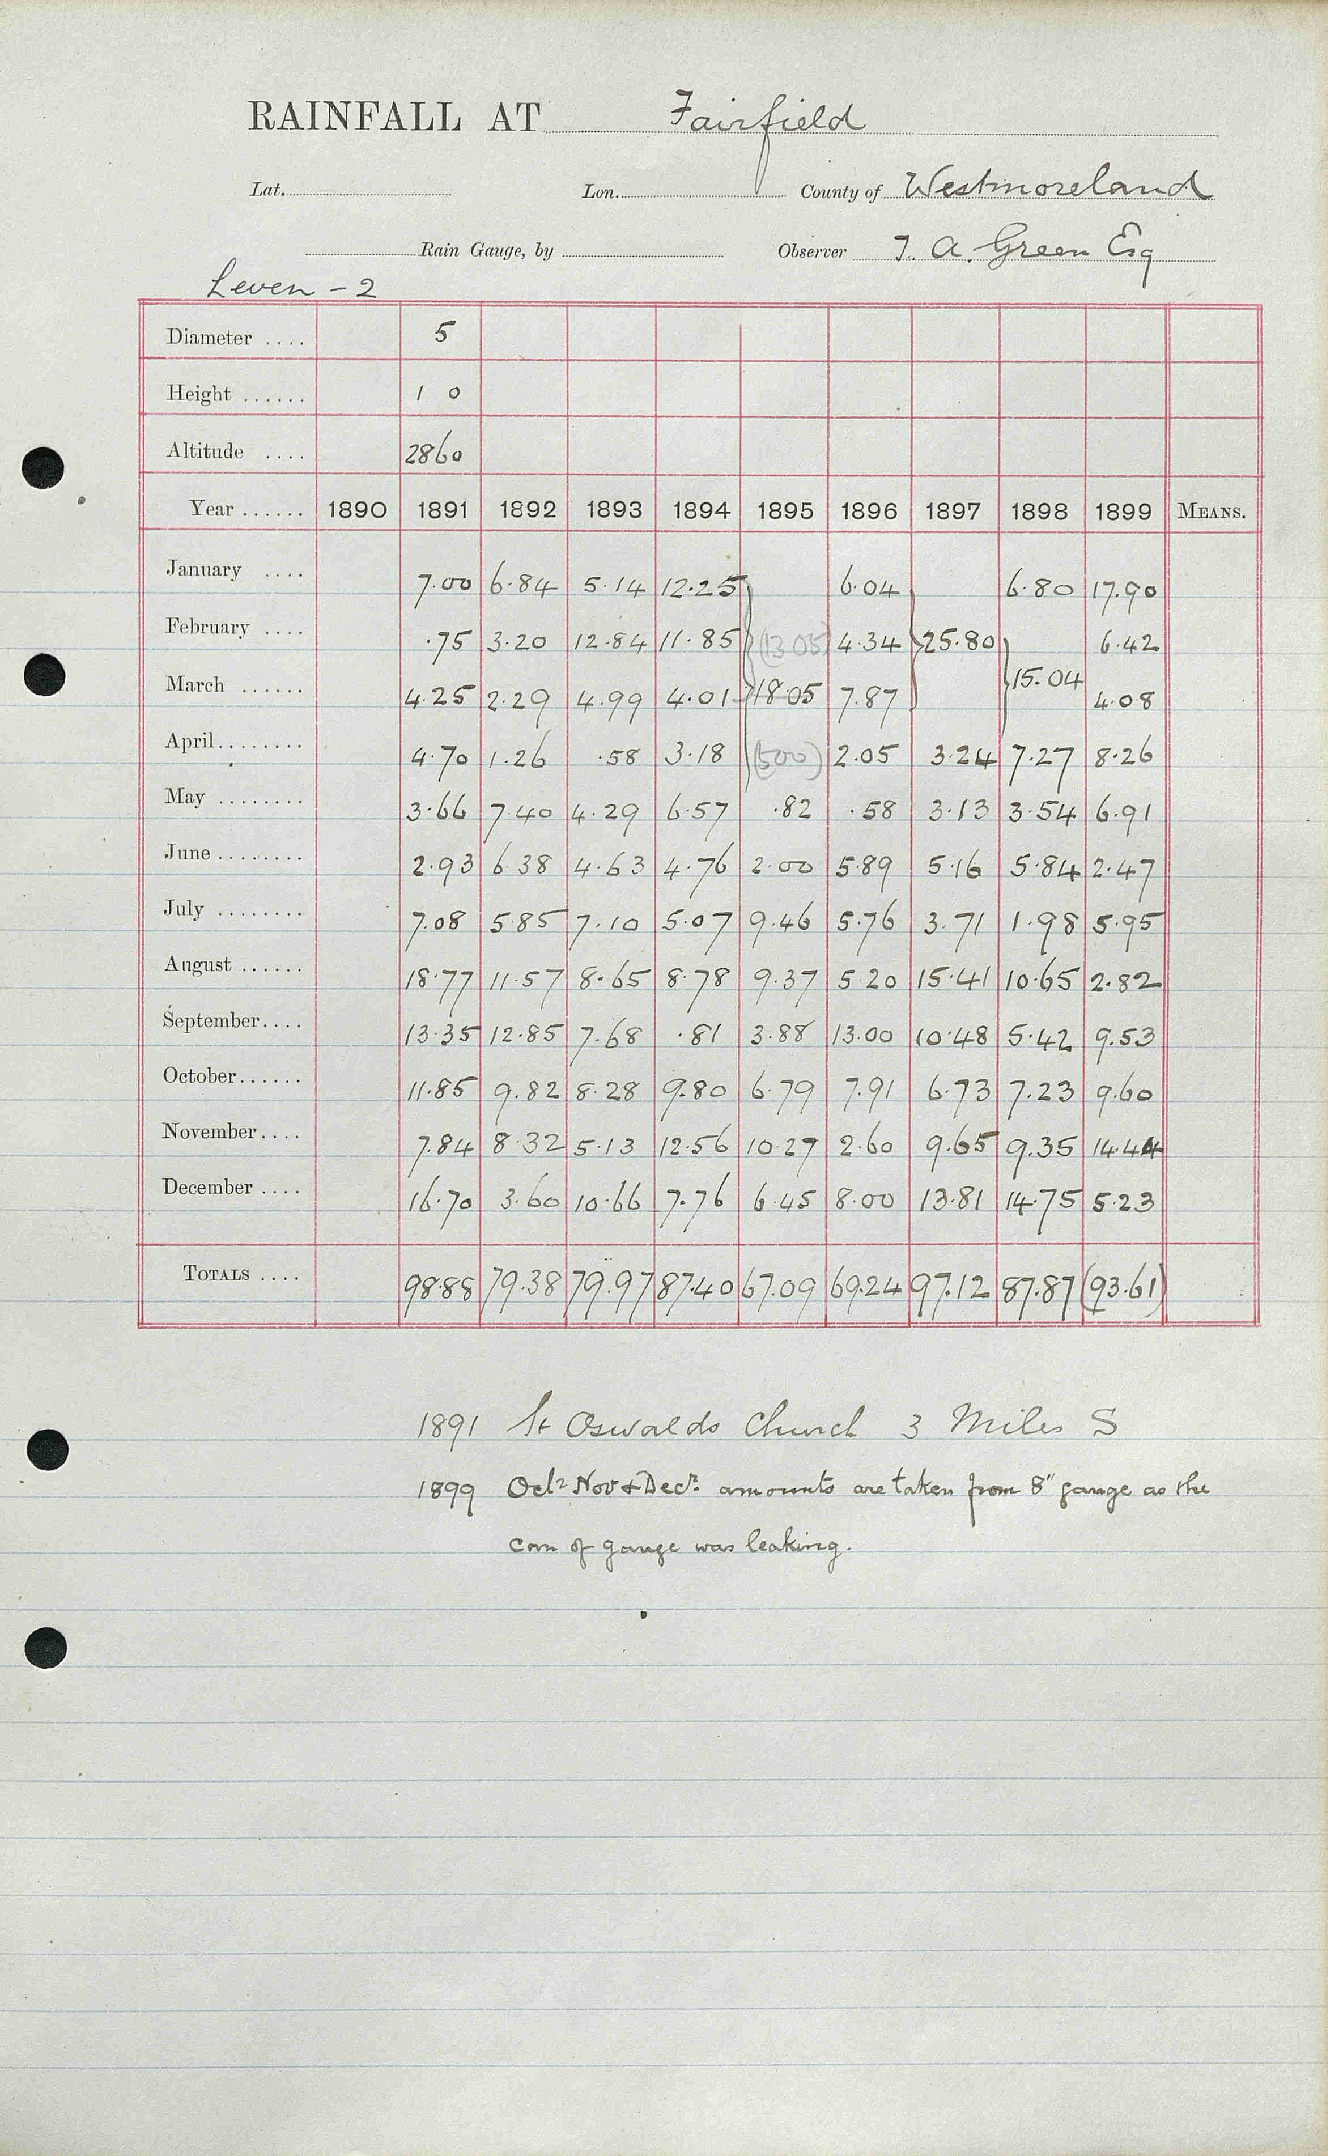 RAINFALL AT Fairfield
Lat. Lon. County of Westmoreland
Rain Gauge, by Observer T. A. Green Esq
Leven - 2
Diameter .... 5
Height ...... 1 0
Altitude .... 2860
Year ...... 1890 1891 1892 1893 1894 1895 1896 1897 1898 1899 MEANS.
January .... 7.00 6.84 5.14 12.25 6.04 6.80 17.90
February .... .75 3.20 12.84 11.85 (13.05) 4.34 25.80 6.42
March ...... 4.25 2.29 4.99 4.01 18.05 7.87 15.04 4.08
April........ 4.70 1.26 .58 3.18 (500) 2.05 3.24 7.27 8.26
May ........ 3.66 7.40 4.29 6.57 .82 .58 3.13 3.54 6.91
June ........ 2.93 6.38 4.63 4.76 2.00 5.89 5.16 5.84 2.47
July ........ 7.08 5.85 7.10 5.07 9.46 5.76 3.71 1.98 5.95
August ...... 18.77 11.57 8.65 8.78 9.37 5.20 15.41 10.65 2.82
September.... 13.35 12.85 7.68 .81 3.88 13.00 10.48 5.42 9.53
October...... 11.85 9.82 8.28 9.80 6.79 7.91 6.73 7.23 9.60
November.... 7.84 8.32 5.13 12.56 10.27 2.60 9.65 9.35 14.44
December .... 16.70 3.60 10.66 7.76 6.45 8.00 13.81 14.75 5.23
TOTALS .... 98.88 79.38 79.97 87.40 67.09 69.24 97.12 87.87 (93.61)
1891 St Oswalds Church 3 Miles S
1899 Octr Nov & Decr. amounts are taken from 8" gauge as the
can of gauge was leaking.